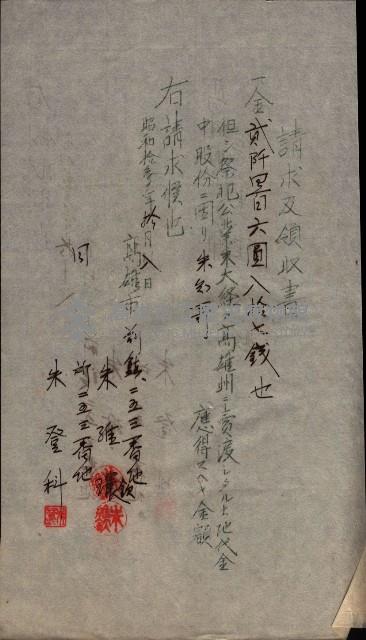 請求及領收書
一金貳阡四百六圓八拾七錢也
但シ祭祀公業朱大經高雄州ニ賣渡シタル土地代金
中股份ニ因リ朱知哥應得スヘキ金額
右請求候也
昭和拾年拾月八日
高雄市前鎮二五三番地
朱維
同所二五三番地
朱登科